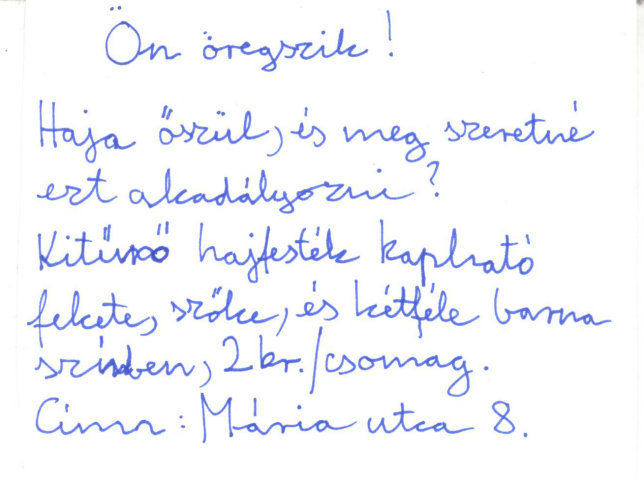 Ön öregszik!
Haja őszül, és meg szeretné
ezt akadályozni?
Kitűnő hajfesték kapható
fekete, szőke, és kétféle barna
színben, 2 kr./csomag.
Cím: Mária utca 8.